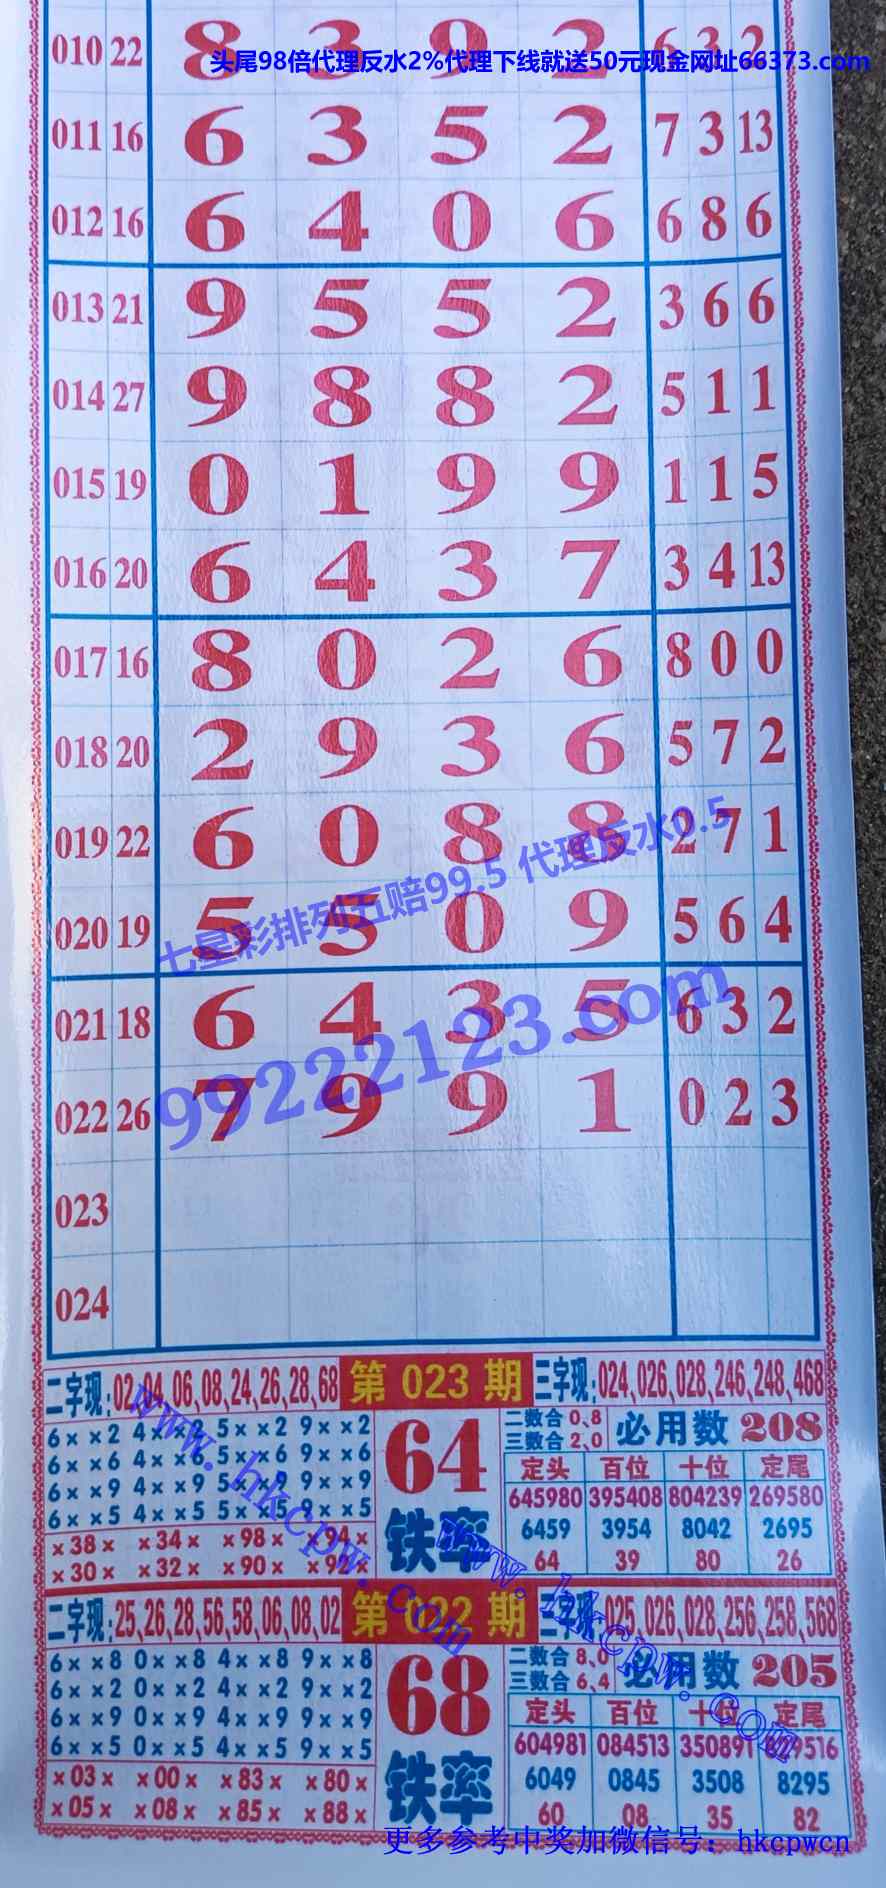 010 22 8 3 9 2 6 3 2
头尾98倍代理反水2%代理下线就送50元现金网址66373.com
011 16 6 3 5 2 7 3 13
012 16 6 4 0 6 6 8 6
013 21 9 5 5 2 3 6 6
014 27 9 8 8 2 5 1 1
015 19 0 1 9 9 1 1 5
016 20 6 4 3 7 3 4 13
017 16 8 0 2 6 8 0 0
018 20 2 9 3 6 5 7 2
019 22 6 0 8 8 2 7 1
七星彩排列五赔99.5 代理反水0.5
020 19 5 5 0 9 5 6 4
021 18 6 4 3 5 6 3 2
99222123.com
022 26 7 9 9 1 0 2 3
023
024
二字现:02,04,06,08,24,26,28,68 第 023 期 三字现:024,026,028,246,248,468
6××2 4××2 5××2 9××2
6××6 4××6 5××6 9××6
6××9 4××9 5××9 9××9
6××5 4××5 5××5 9××5
×38× ×34× ×98× ×94×
×30× ×32× ×90× ×92×
64
铁率
二数合 0、8
三数合 2、0
必用数 208
定头 百位 十位 定尾
645980 395408 804239 269580
6459 3954 8042 2695
64 39 80 26
www.hkcpw.com
www.hkcpw.com
二字现:25,26,28,56,58,06,08,02 第 022 期 三字现:025,026,028,256,258,568
6××8 0××8 4××8 9××8
6××2 0××2 4××2 9××2
6××9 0××9 4××9 9××9
6××5 0××5 4××5 9××5
×03× ×00× ×83× ×80×
×05× ×08× ×85× ×88×
68
铁率
二数合 8、0
三数合 6、4
必用数 205
定头 百位 十位 定尾
604981 084513 350891 829516
6049 0845 3508 8295
60 08 35 82
更多参考中奖加微信号：hkcpwcn